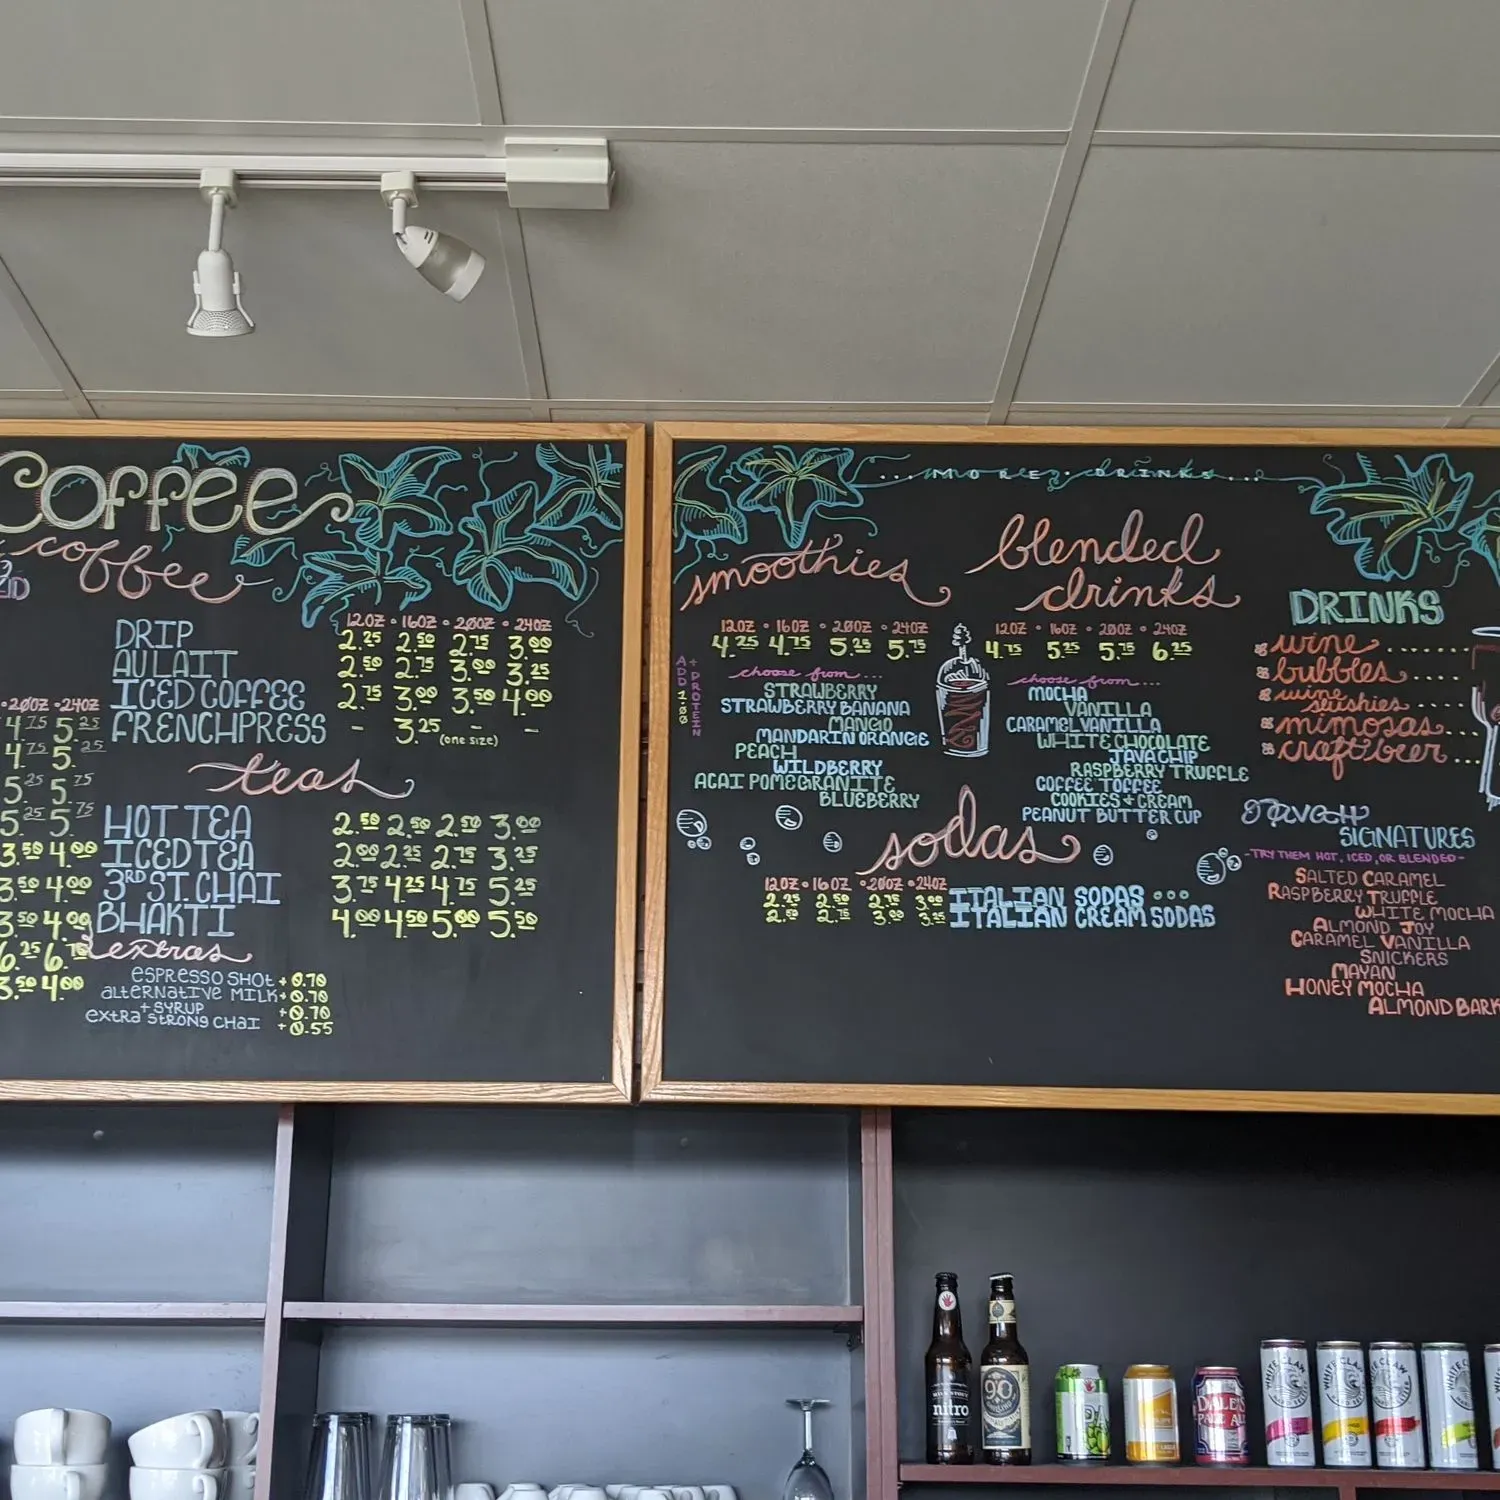 Coffee
coffee
12OZ • 16OZ • 20OZ • 24OZ
DRIP 2.25 2.50 2.75 3.00
AU LAIT 2.50 2.75 3.00 3.25
ICED COFFEE 2.75 3.00 3.50 4.00
FRENCH PRESS - 3.25 (one size) -
• 20OZ • 24OZ
4.75 5.25
4.75 5.25
5.25 5.75
5.25 5.75
3.50 4.00
3.50 4.00
3.50 4.00
6.25 6.75
3.50 4.00
teas
HOT TEA 2.50 2.50 2.50 3.00
ICED TEA 2.00 2.25 2.75 3.25
3RD ST. CHAI 3.75 4.25 4.75 5.25
BHAKTI 4.00 4.50 5.00 5.50
extras
ESPRESSO SHOT + 0.70
ALTERNATIVE MILK + 0.70
+ SYRUP + 0.70
EXTRA STRONG CHAI + 0.55
...MORE • DRINKS...
smoothies
12OZ • 16OZ • 20OZ • 24OZ
4.25 4.75 5.25 5.75
ADD 1.00
+ PROTEIN
choose from...
STRAWBERRY
STRAWBERRY BANANA
MANGO
MANDARIN ORANGE
PEACH
WILDBERRY
ACAI POMEGRANITE
BLUEBERRY
blended
drinks
12OZ • 16OZ • 20OZ • 24OZ
4.75 5.25 5.75 6.25
choose from...
MOCHA
VANILLA
CARAMEL VANILLA
WHITE CHOCOLATE
JAVA CHIP
RASPBERRY TRUFFLE
COFFEE TOFFEE
COOKIES + CREAM
PEANUT BUTTER CUP
sodas
12OZ • 16OZ • 20OZ • 24OZ
2.25 2.50 2.75 3.00 ITALIAN SODAS •••
2.50 2.75 3.00 3.25 ITALIAN CREAM SODAS
DRINKS
wine
bubbles
wine
slushies
mimosas
craft beer
SIGNATURES
-TRY THEM HOT, ICED, OR BLENDED-
SALTED CARAMEL
RASPBERRY TRUFFLE
WHITE MOCHA
ALMOND JOY
CARAMEL VANILLA
SNICKERS
MAYAN
HONEY MOCHA
ALMOND BARK
nitro
90
DALE'S
PALE ALE
WHITE CLAW
WHITE CLAW
WHITE CLAW